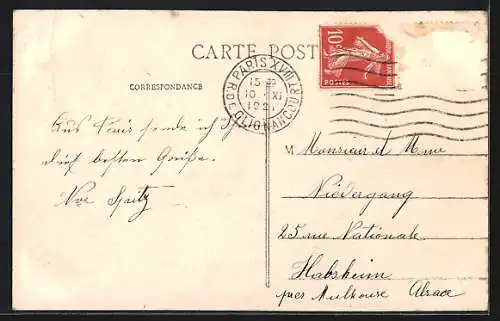 CARTE POST
CORRESPONDANCE
PARIS XVIII
15
10 XI
1921
R. DE CLIGNANCOURT
10c
POSTES
Aus Paris sende ich Ihnen
die besten Grüße.
Spitz
Monsieur et Mme
Niedagang
25 rue Nationale
Habsheim
près Mulhouse Alsace